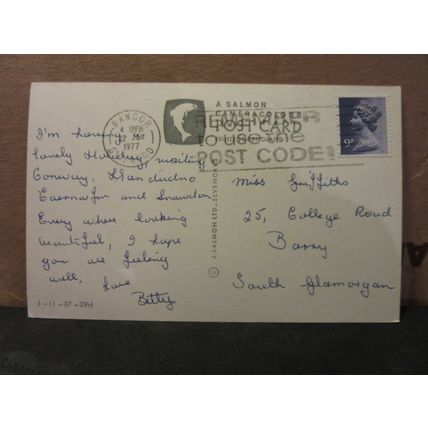 A SALMON
CAMERACOLOUR
POST CARD
BANGOR
4 PM
1977
REMEMBER
to use the
POST CODE
9P
I'm having
lovely Holiday, visiting
Conway, Llandudno
Caernarfon and Snowdon
Every where looking
beautiful, I hope
you are feeling
well, Love
Betty
1-11-07-09H
J. SALMON LTD., SEVENOAKS
Miss Griffiths
25, College Road
Barry
South Glamorgan